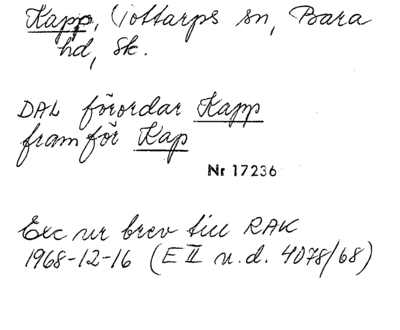 Kapp, Gottarps sn, Bara
hd, Sk.
DAL förordar Kapp
framför Kap
Nr 17236
Exc ur brev till RAK
1968-12-16 (E II u.d. 4078/68)